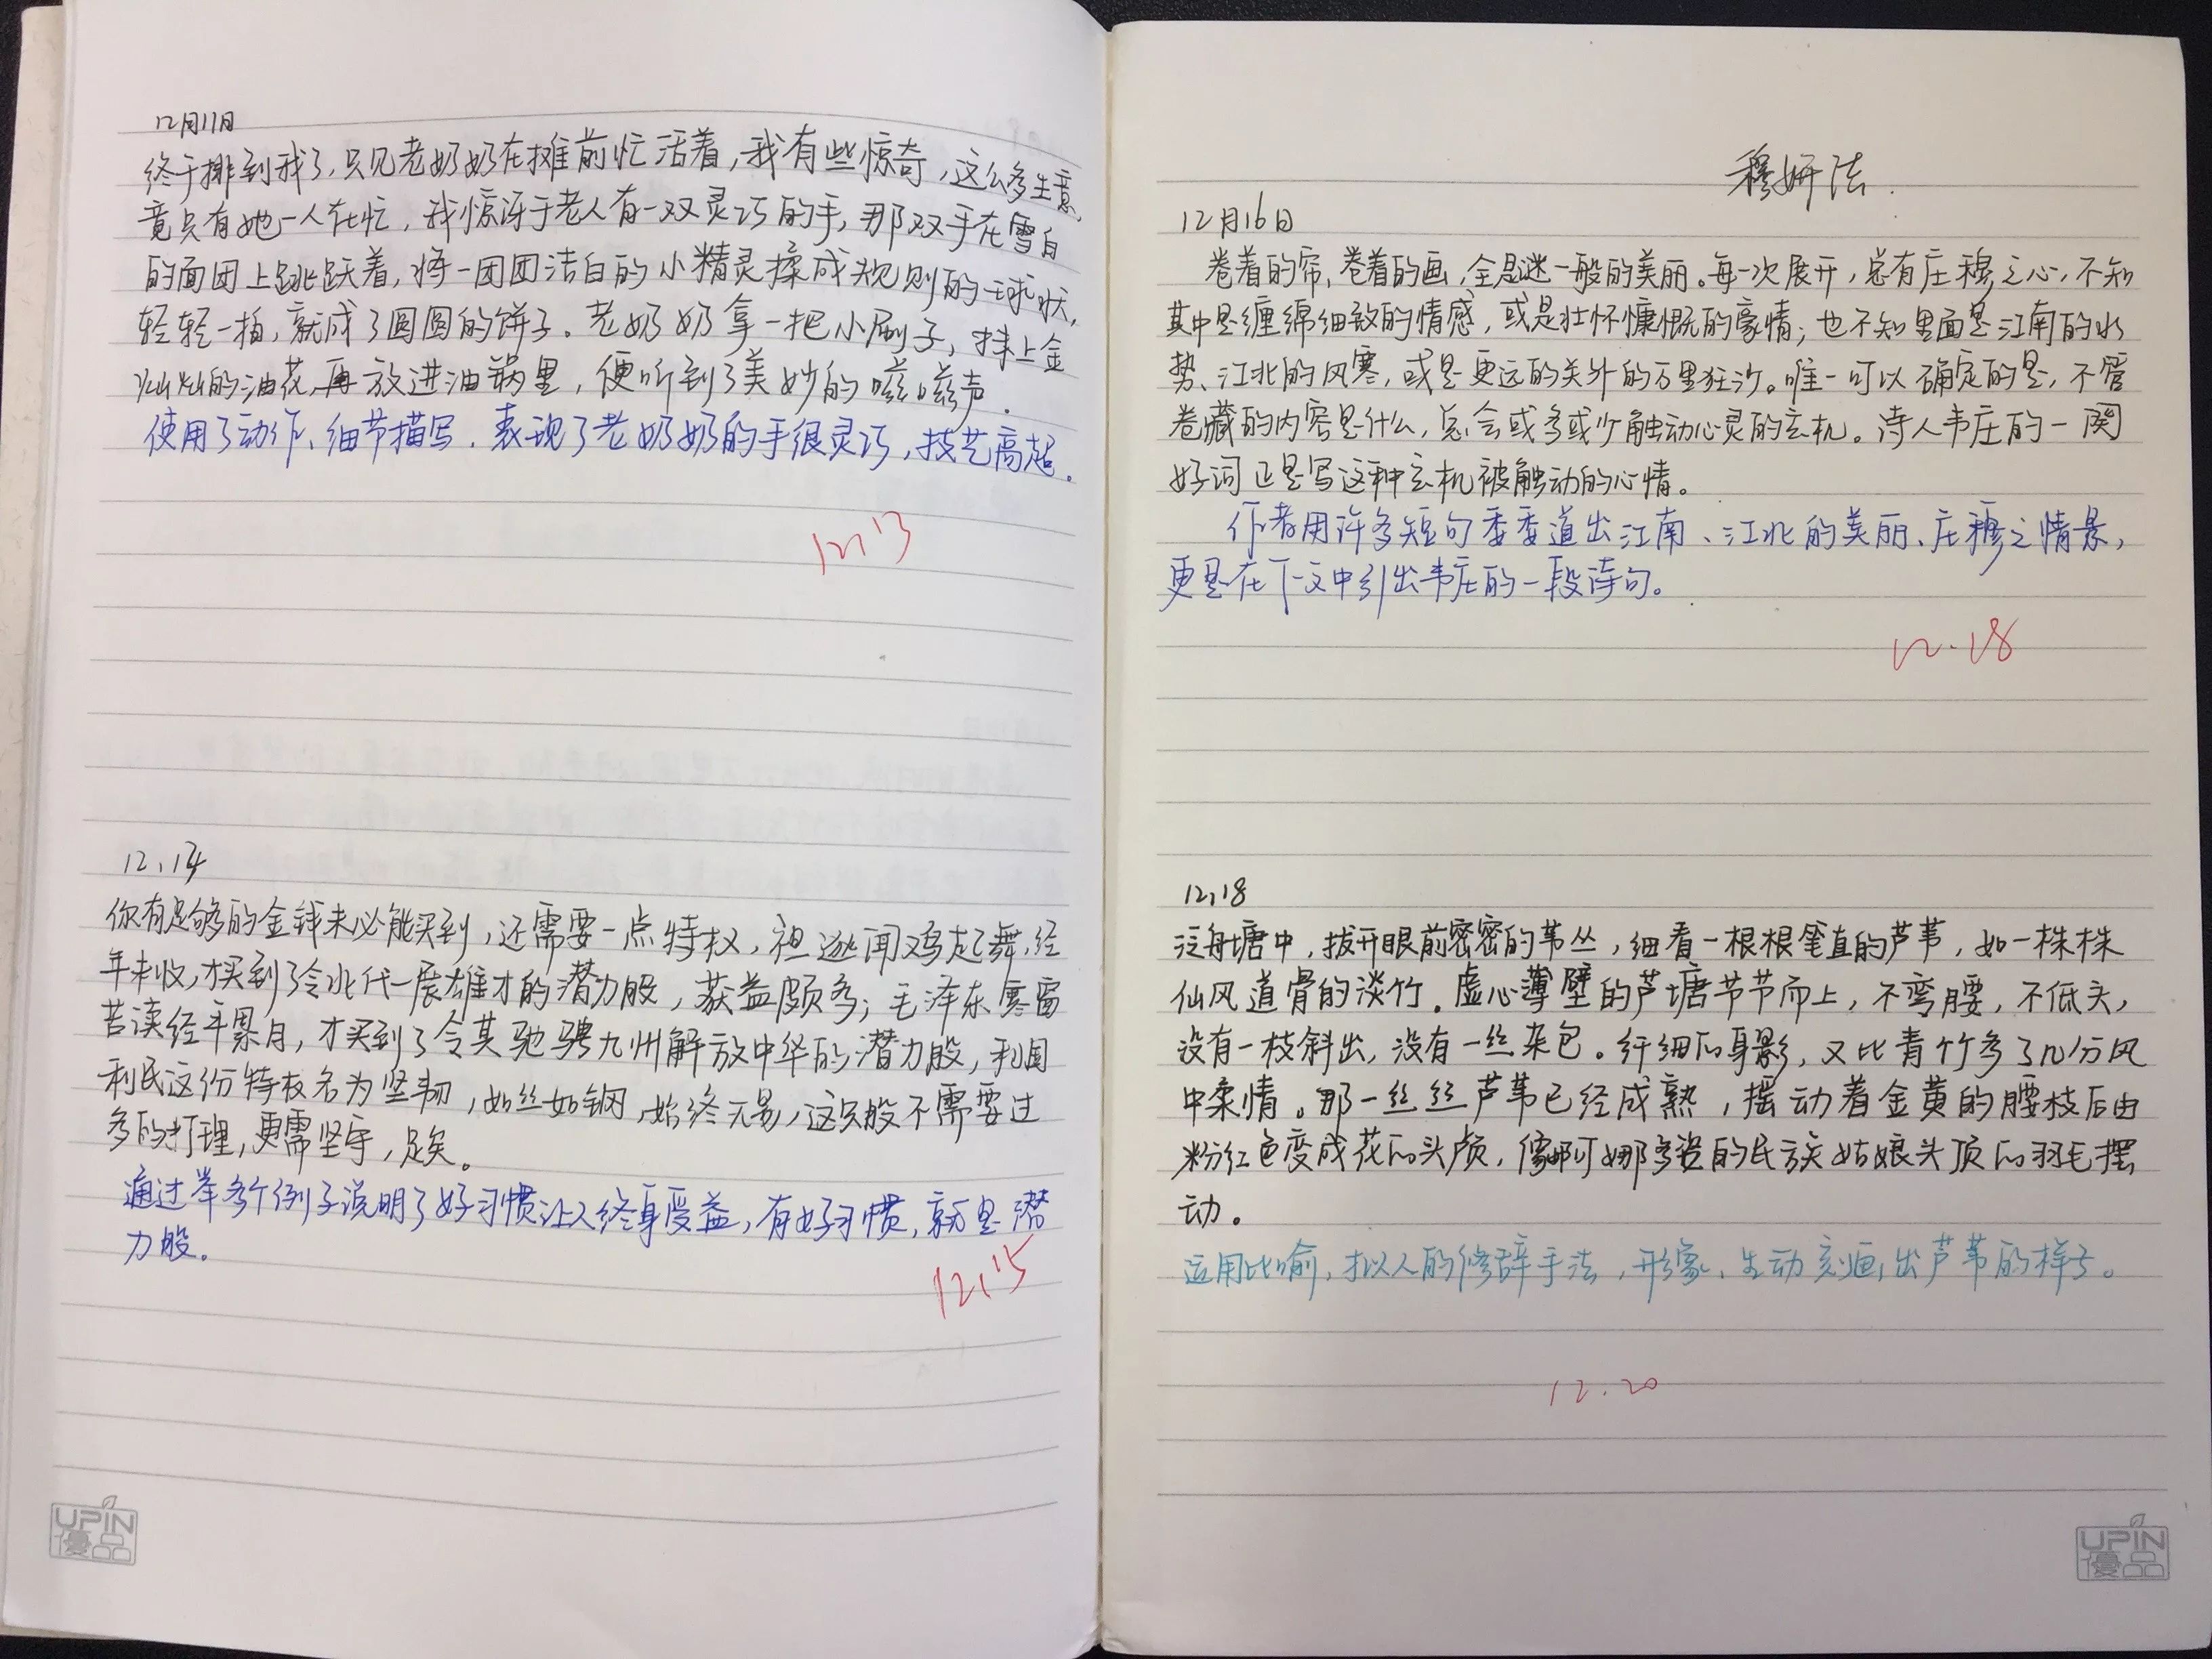 12月11日
终于排到我了,只见老奶奶在摊前忙活着,我有些惊奇,这么多生意,
竟只有她一人在忙,我惊讶于老人有一双灵巧的手,那双手在雪白
的面团上跳跃着,将一团团洁白的小精灵揉成规则的球状,
轻轻一拍,就成了圆圆的饼子。老奶奶拿一把小刷子,抹上金
灿灿的油花,再放进油锅里,便听到了美妙的嗞嗞声.
使用了动作、细节描写.表现了老奶奶的手很灵巧,技艺高超。
12.13
12.14
你有足够的金钱未必能买到,还需要一点特权,祖逖闻鸡起舞,经
年未收,才买到了令北伐一展雄才的潜力股,获益颇多;毛泽东寒窗
苦读经年累月,才买到了令其驰骋九州解放中华的潜力股,利国
利民这份特权名为坚韧,如丝如钢,始终无易,这只股不需要过
多的打理,更需坚守,足矣。
通过举多个例子说明了好习惯让人终身受益,有好习惯,就是潜
力股。
12.15
穆妍法.
12月16日
卷着的帘、卷着的画,全是谜一般的美丽。每一次展开,总有庄穆之心,不知
其中是缠绵细致的情感,或是壮怀慷慨的豪情;也不知里面是江南的水
势、江北的风寒,或是更远的关外的万里狂沙。唯一可以确定的是,不管
卷藏的内容是什么,总会或多或少触动心灵的玄机。诗人韦庄的一阕
好词正是写这种玄机被触动的心情。
作者用许多短句委委道出江南、江北的美丽、庄穆之情景,
更是在下文中引出韦庄的一段诗句。
12.18
12.18
泛舟塘中,拔开眼前密密的苇丛,细看一根根笔直的芦苇,如一株株
仙风道骨的淡竹.虚心薄壁的芦塘节节而上,不弯腰,不低头,
没有一枝斜出,没有一丝杂色。纤细的身影,又比青竹多了几分风
中柔情。那一丝丝芦苇已经成熟,摇动着金黄的腰枝后由
粉红色变成花的头颅,像婀娜多姿的民族姑娘头顶的羽毛摆
动。
运用比喻,拟人的修辞手法,形象、生动刻画出芦苇的样子。
12.20
UPIN
優品
UPIN
優品